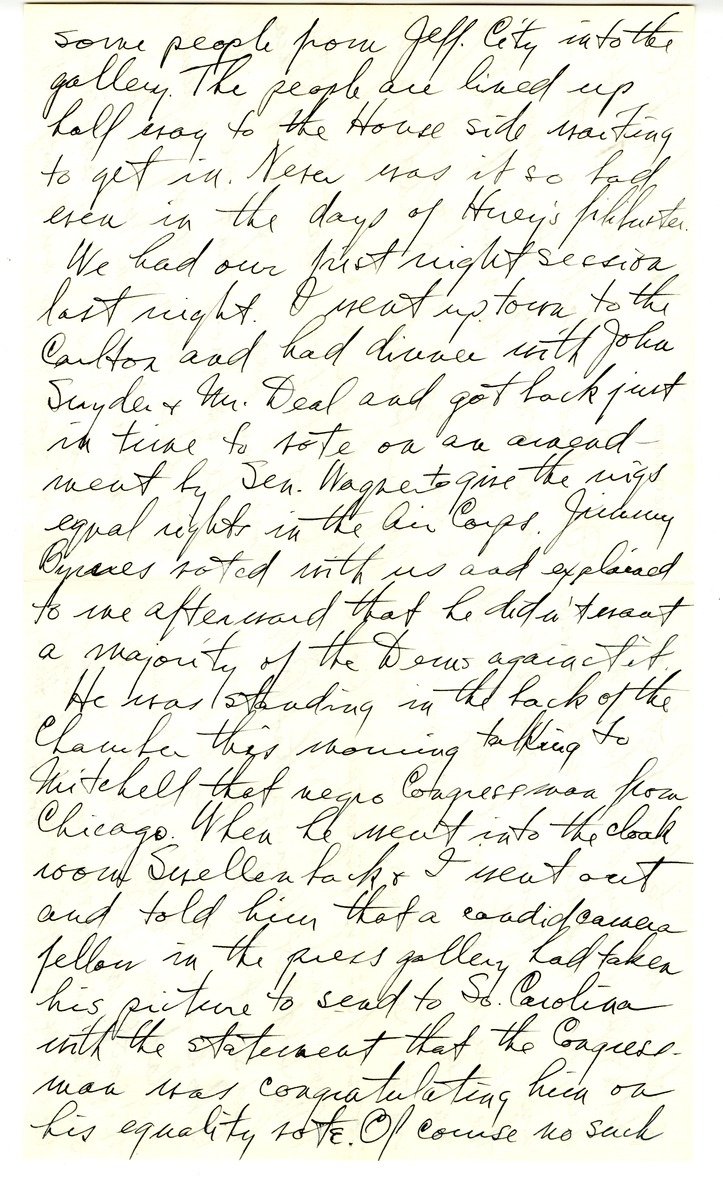 some people from Jeff. City into the
gallery. The people are lined up
half way to the House side waiting
to get in. Never was it so bad
even in the days of Huey's filibuster.
We had our first night session
last night. I went up town to the
Carlton and had dinner with John
Snyder & Mr. Deal and got back just
in time to vote on an amend-
ment by Sen. Wagner to give the nigs
equal rights in the Air Corps. Jimmy
Byrnes voted with us and explained
to me afterward that he didn't want
a majority of the Dems against it.
He was standing in the back of the
Chamber this morning talking to
Mitchell that negro Congressman from
Chicago. When he went into the cloak
room Swellenback & I went out
and told him that a candid camera
fellow in the press gallery had taken
his picture to send to So. Carolina
with the statement that the Congress-
man was congratulating him on
his equality vote. Of course no such